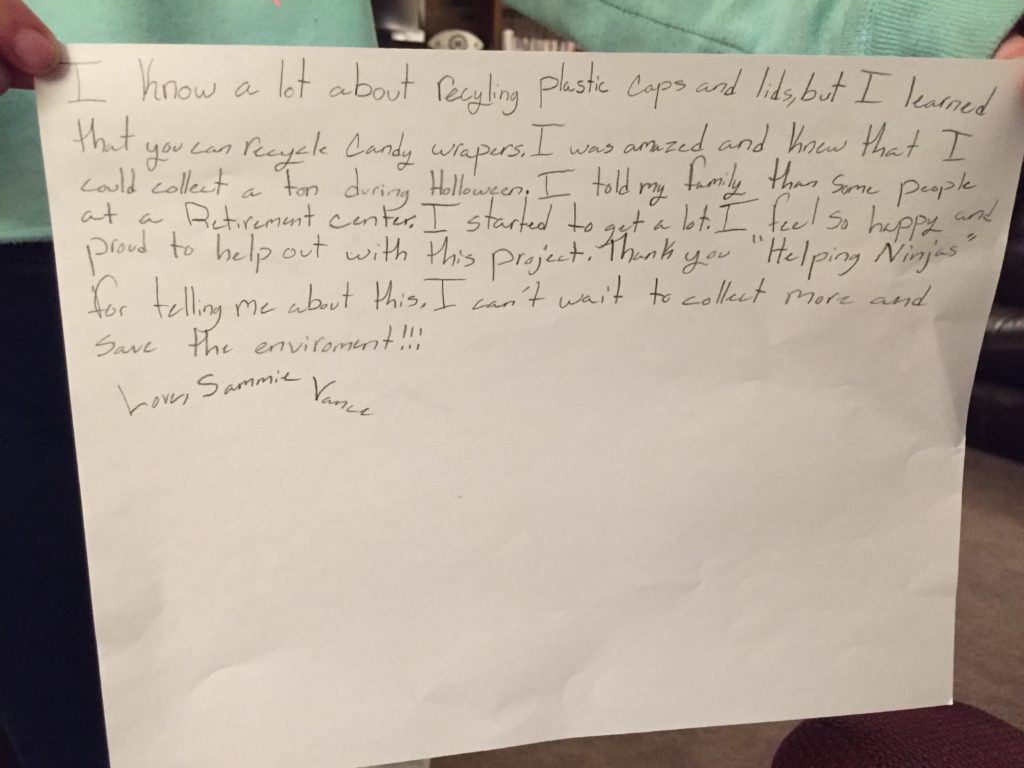 I know a lot about recyling plastic caps and lids, but I learned
that you can recycle Candy wrapers. I was amazed and knew that I
could collect a ton during Holloween. I told my family than some people
at a Retirement center. I started to get a lot. I feel so happy and
proud to help out with this project. Thank you "Helping Ninjas"
for telling me about this. I can't wait to collect more and
save the enviroment!!!
Love, Sammie Vance